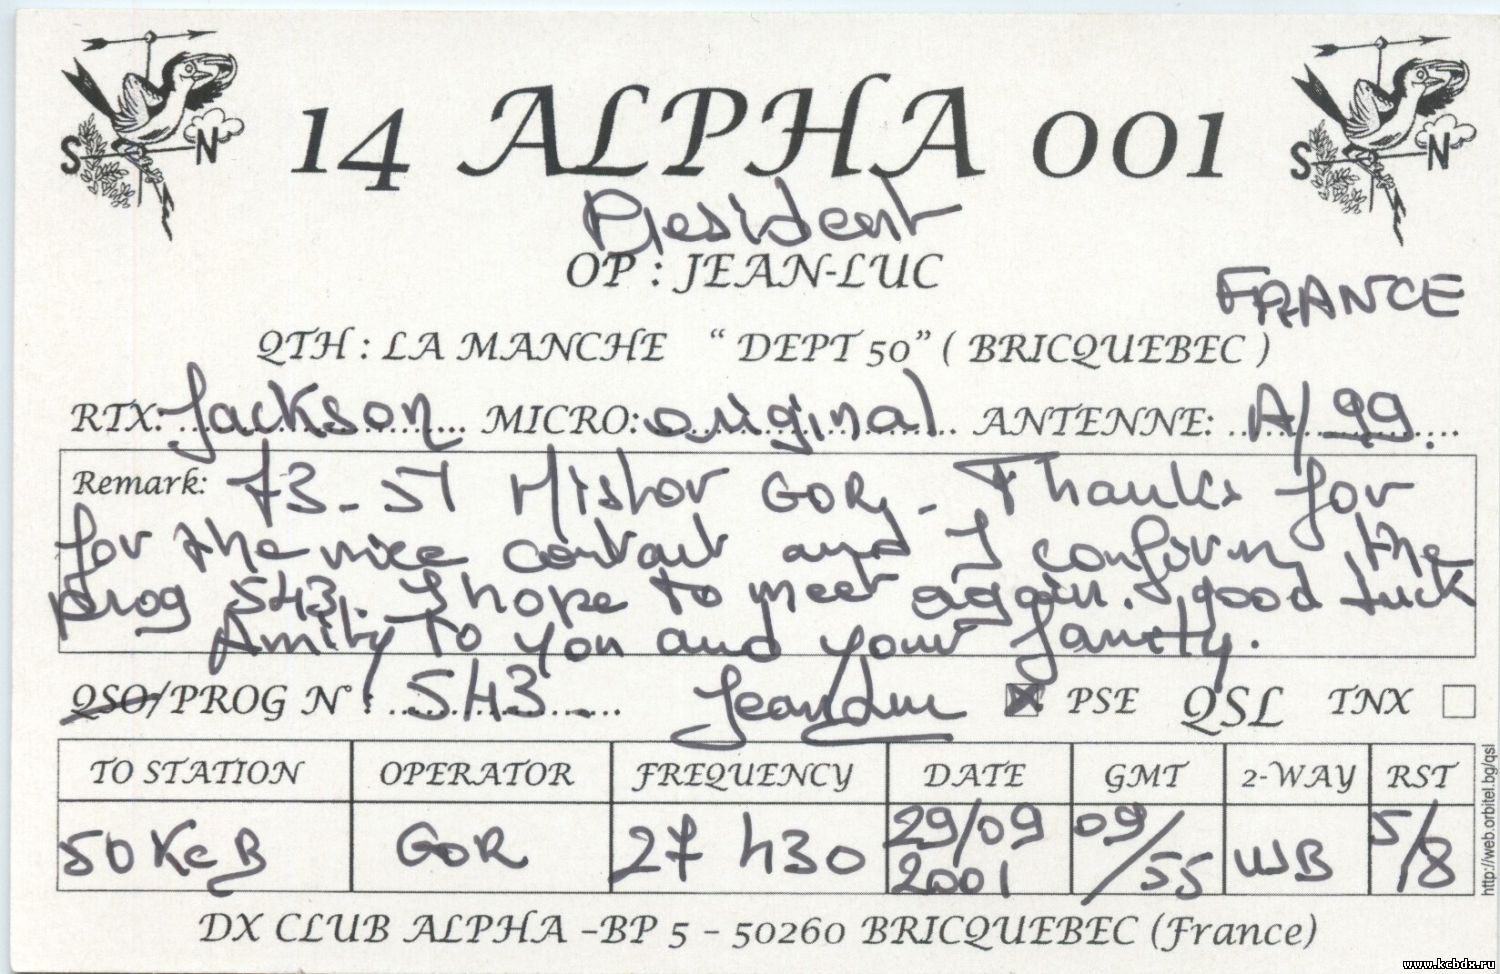 S N
14 ALPHA 001
S N
President
OP : JEAN-LUC
FRANCE
QTH : LA MANCHE " DEPT 50" ( BRICQUEBEC )
RTX: Jackson MICRO: original ANTENNE: A/99
Remark: 73-51 Mistor GOR, - Thanks for
for the nice contact and I confirm the
prog 543. I hope to meet again. good luck
Amity to you and your family.
QSO/PROG N° : 543 PSE QSL TNX
TO STATION OPERATOR FREQUENCY DATE GMT 2-WAY RST
50 KCB GOR 27 430 29/09 2001 09/55 USB 5/8
DX CLUB ALPHA –BP 5 – 50260 BRICQUEBEC (France)
http://web.orbitel.bg/qsl
www.kcbdx.ru